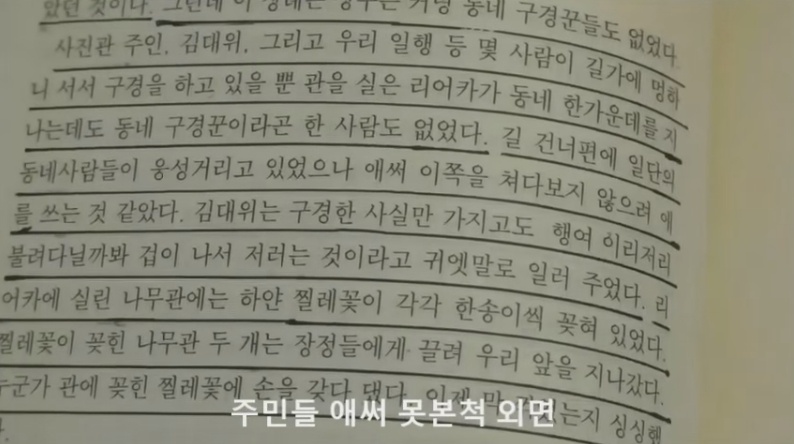 았던 것이다. 그런데 이 장례는 동네 구경꾼들도 없었다.
사진관 주인, 김대위, 그리고 우리 일행 등 몇 사람이 길가에 멍하
니 서서 구경을 하고 있을 뿐 관을 실은 리어카가 동네 한가운데를 지
나는데도 동네 구경꾼이라곤 한 사람도 없었다. 길 건너편에 일단의
동네사람들이 웅성거리고 있었으나 애써 이쪽을 쳐다보지 않으려 애
를 쓰는 것 같았다. 김대위는 구경한 사실만 가지고도 행여 이리저리
불려다닐까봐 겁이 나서 저러는 것이라고 귀엣말로 일러 주었다. 리
어카에 실린 나무관에는 하얀 찔레꽃이 각각 한송이씩 꽂혀 있었다.
찔레꽃이 꽂힌 나무관 두 개는 장정들에게 끌려 우리 앞을 지나갔다.
누군가 관에 꽂힌 찔레꽃에 손을 갖다 댔다. 이제 막 싱싱했
주민들 애써 못본척 외면